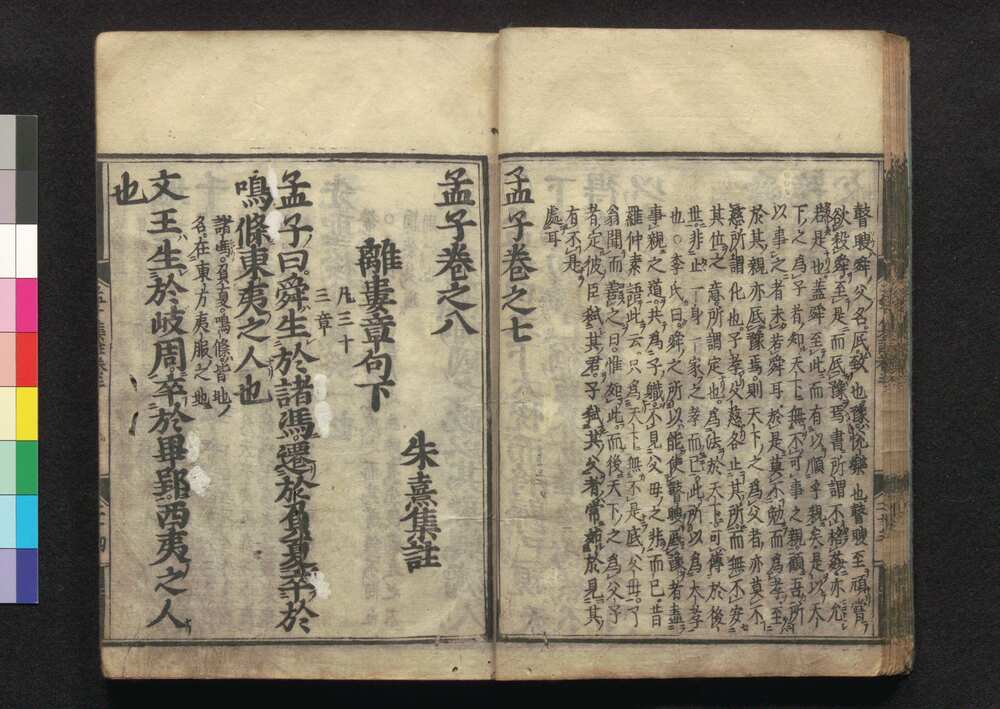 瞽瞍舜父名厎致也豫悅樂也瞽瞍至頑嘗
欲殺舜至是而厎豫焉書所謂不格姦亦允
若是也蓋舜至此而有以順乎親矣是以天
下之爲子者知天下無不可事之親顧吾所
以事之者未若舜耳於是莫不勉而爲孝至
於其親亦厎豫焉則天下之爲父者亦莫不
慈所謂化也子孝父慈各止其所而無不安
其位之意所謂定也爲法於天下可傳於後
世非止一身一家之孝而已此所以爲大孝
也○李氏曰舜之所以能使瞽瞍厎豫者盡
事親之道共爲子職不見父母之非而已昔
羅仲素語此云只爲天下無不是底父母了
翁聞而善之曰惟如此而後天下之爲父子
者定彼臣弑其君子弑其父者常始於見其
有不是
處耳
孟子卷之七
孟子卷之八
朱熹集註
離婁章句下
凡三十
三章
孟子曰舜生於諸馮遷於負夏卒於
鳴條東夷之人也
諸馮負夏鳴條皆地
名在東方夷服之地
文王生於岐周卒於畢郢西夷之人
也